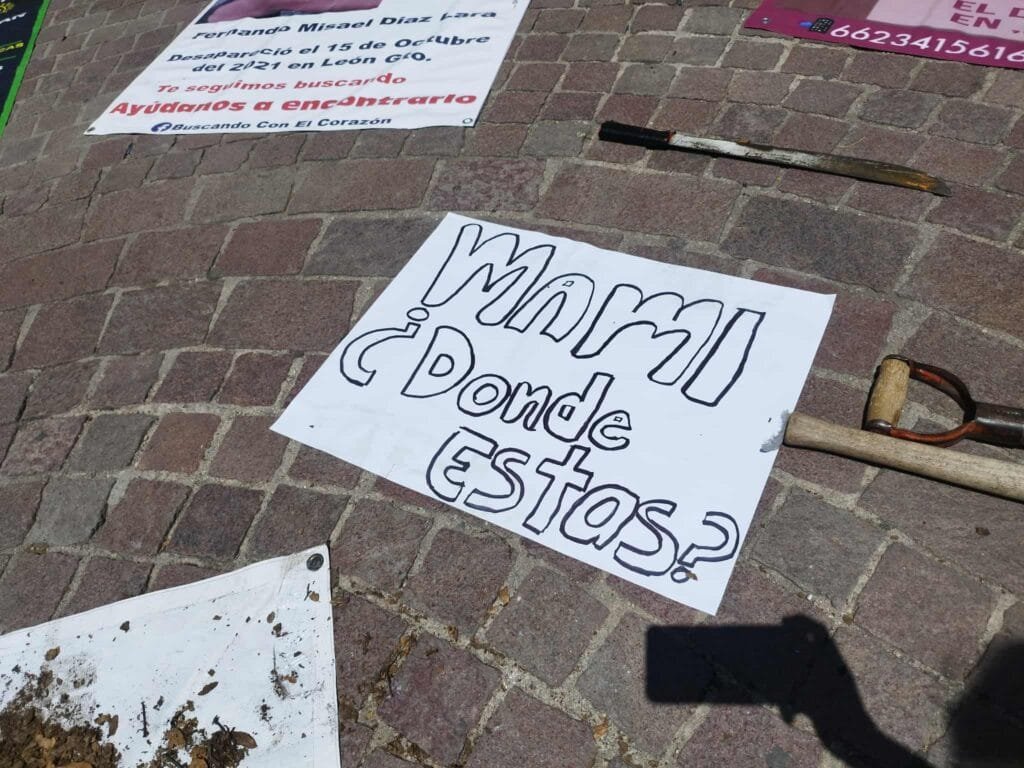 Fernando Misael Diaz Lara
Desapareció el 15 de Octubre
del 2021 en León Gto.
Te seguimos buscando
Ayúdanos a encontrarlo
Buscando Con El Corazón
EN
6623415616
MAMI
¿Donde
Estas?